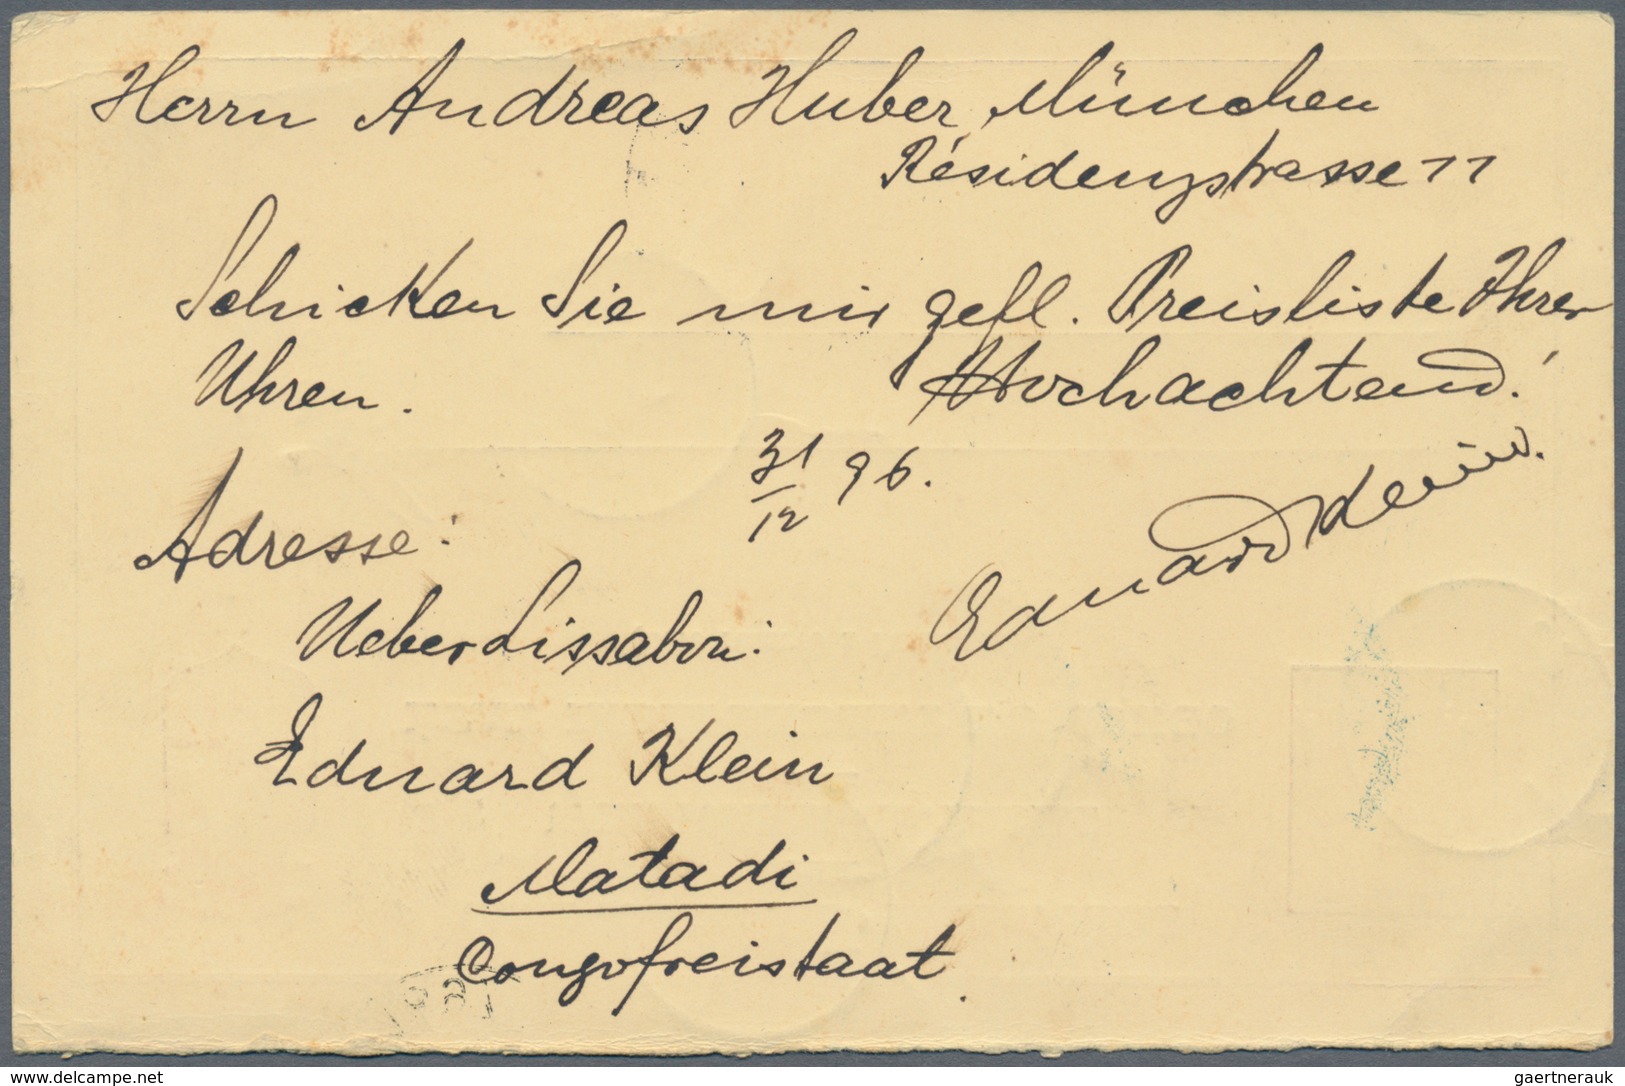 Herrn Andreas Huber, München
Résidenzstrasse 11
Schicken Sie mir gefl. Preisliste Ihrer
Uhren. Hochachtend!
31/12 96.
Eduard Klein.
Adresse:
Ueber Lissabon:
Eduard Klein
Matadi
Congofreistaat.
www.delcampe.net
gaertnerauk